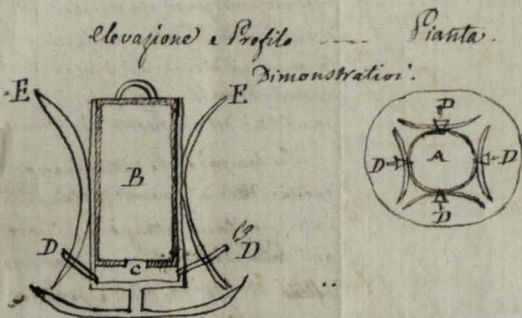 Elevazione e Profilo ---- Pianta.
Dimonstrativi.
E E
D
B D A D
D
D D
C